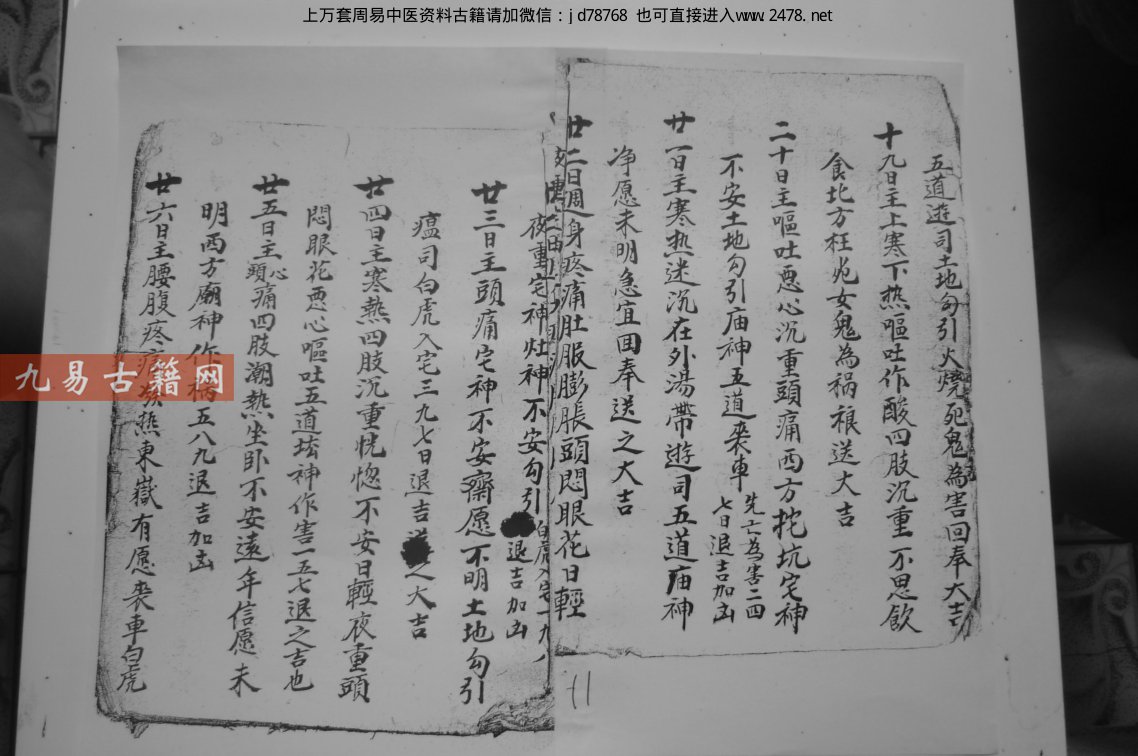 上万套周易中医资料古籍请加微信：jd78768 也可直接进入www.2478.net
五道遊司土地勾引火燒死鬼為害回奉大吉
十九日主上寒下热嘔吐作酸四肢沉重不思飲
食北方枉死女鬼為祸禳送大吉
二十日主嘔吐恶心沉重頭痛西方挖坑宅神
不安土地勾引庙神五道丧車先亡為害二四
七日退吉加凶
廿一日主寒热迷沉在外湯帶遊司五道庙神
净愿未明急宜回奉送之大吉
廿二日週身疼痛肚服膨脹頭悶眼花日輕
夜重宅神灶神不安勾引白虎入宅一九
退吉加凶
廿三日主頭痛宅神不安齋愿不明土地勾引
瘟司白虎入宅三九七日退吉之大吉
廿四日主寒熱四肢沉重恍惚不安日輕夜重頭
悶眼花恶心嘔吐五道坛神作害一五七退之吉也
廿五日主頭心痛四肢潮熱坐卧不安遠年信愿未
明西方廟神作祸五八九退吉加凶
廿六日主腰腹疼痛發熱東嶽有愿丧車白虎
九易古籍网
11